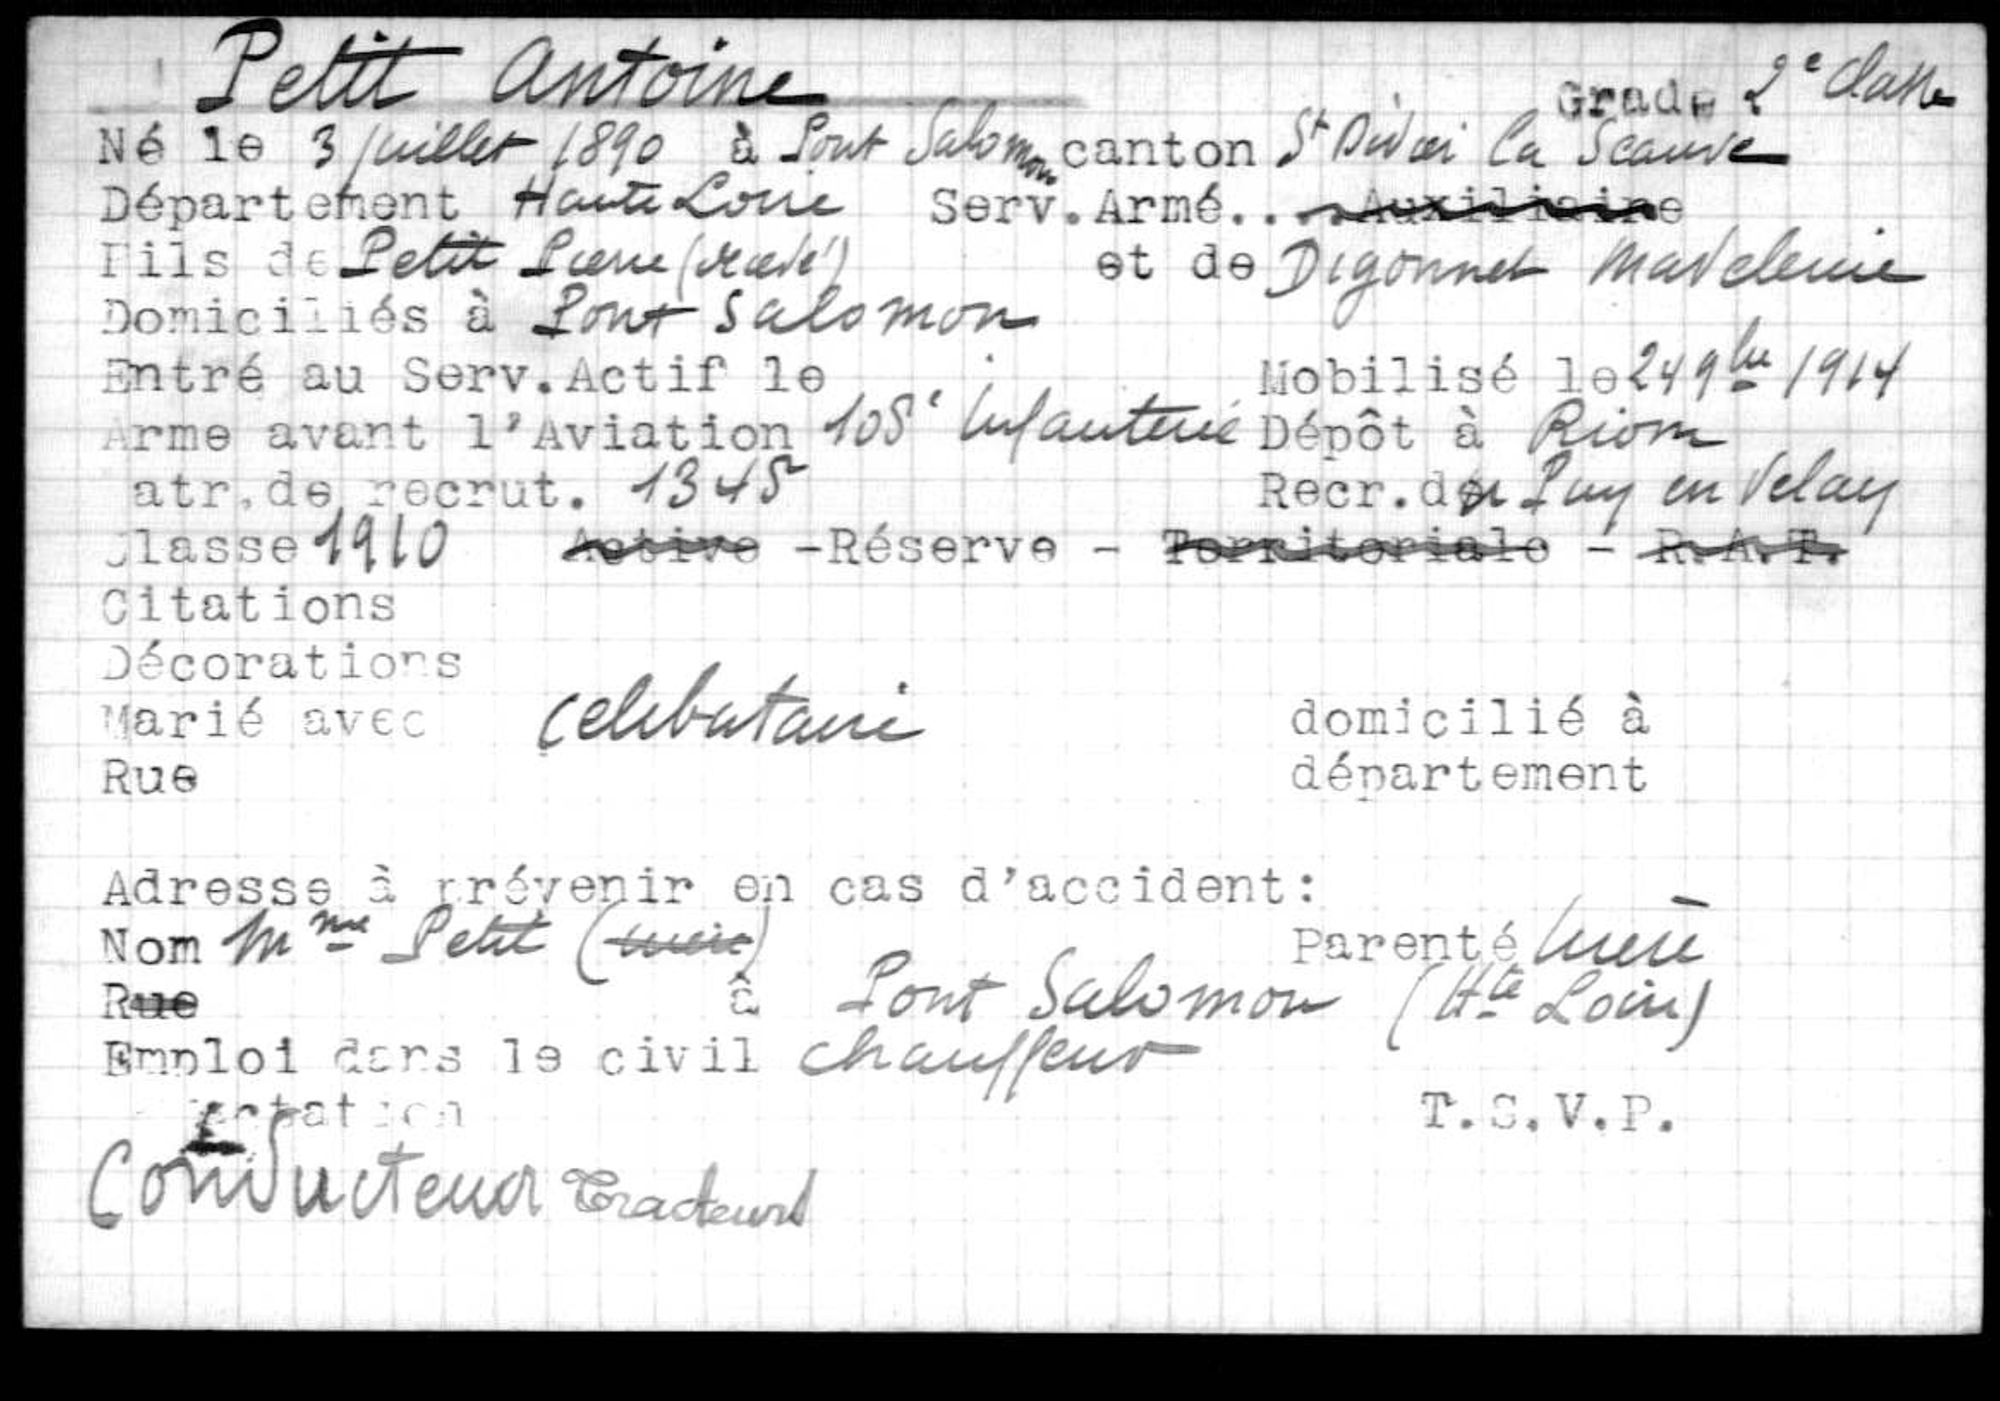 Petit Antoine Grade 2e classe
Né le 3 juillet 1890 à Pont Salomon canton St Didier La Seauve
Département Haute Loire Serv.Armé.. Auxiliaire
Fils de Petit Pierre (décédé) et de Digonnet Madeleine
Domiciliés à Pont Salomon
Entré au Serv.Actif le Mobilisé le 24 9bre 1914
Arme avant l'Aviation 105e Infanterie Dépôt à Riom
atr.de recrut. 1345 Recr.du Puy en Velay
Classe 1910 Active -Réserve - Territoriale - R.A.T.
Citations
Décorations
Marié avec celibataire domicilié à
Rue département
Adresse à prévenir en cas d'accident:
Nom Mme Petit (mère) Parenté mère
Rue à Pont Salomon (Hte Loire)
Emploi dans le civil chauffeur
T.S.V.P.
Conducteur Tracteurs